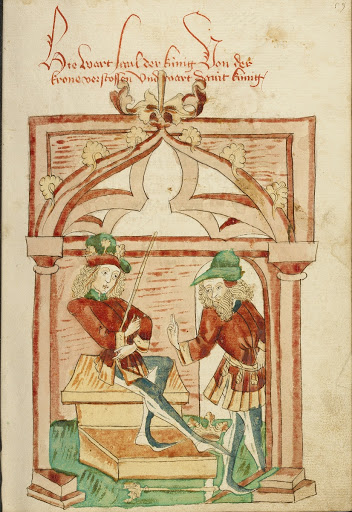 Hie wart saul der künig Von der
krone verstossen Vnd wart Dauit künig